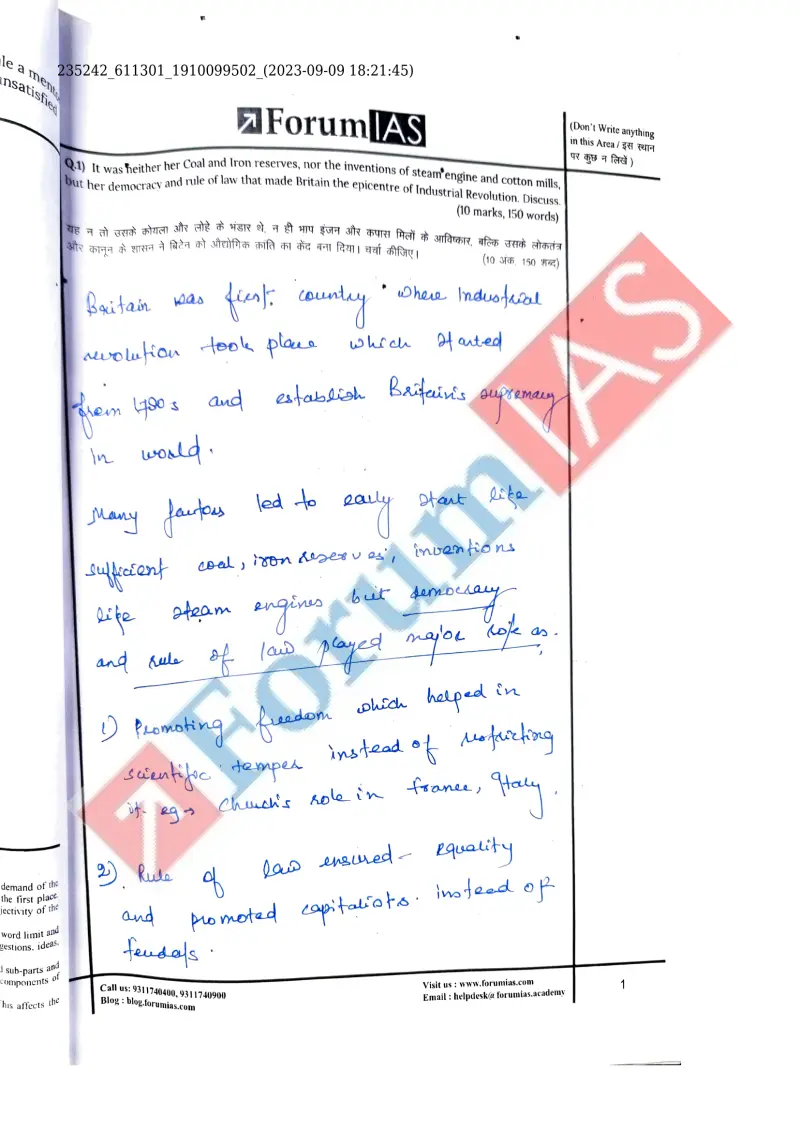 le a mento
unsatisfied
235242_611301_1910099502_(2023-09-09 18:21:45)
ForumIAS
(Don't Write anything
in this Area / इस स्थान
पर कुछ न लिखें )
Q.1) It was neither her Coal and Iron reserves, nor the inventions of steam engine and cotton mills,
but her democracy and rule of law that made Britain the epicentre of Industrial Revolution. Discuss.
(10 marks, 150 words)
यह न तो उसके कोयला और लोहे के भंडार थे, न ही भाप इंजन और कपास मिलों के आविष्कार, बल्कि उसके लोकतंत्र
और कानून के शासन ने ब्रिटेन को औद्योगिक क्रांति का केंद्र बना दिया। चर्चा कीजिए।
(10 अंक, 150 शब्द)
Britain was first country where Industrial
revolution took place which started
from 1790s and establish Britain's supremacy
in world.
Many factors led to early start like
sufficient coal, iron reserves, inventions
like steam engines but democracy
and rule of law played major role as.
1) Promoting freedom which helped in
scientific temper instead of restricting
it. eg → Church's role in France, Italy.
2) Rule of law ensured - equality
and promoted capitalists instead of
feudals.
demand of the
the first place.
jectivity of the
word limit and
gestions, ideas,
l sub-parts and
components of
This affects the
Call us: 9311740400, 9311740900
Blog : blog.forumias.com
Visit us : www.forumias.com
Email : helpdesk@forumias.academy
1
ForumIAS